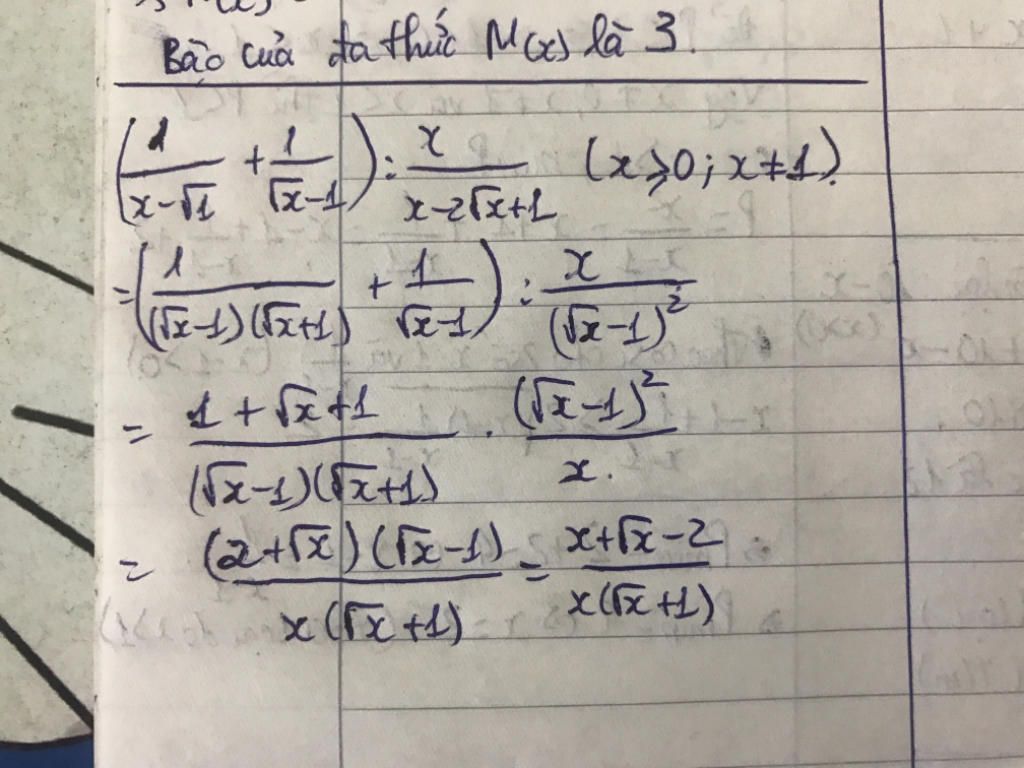 Bào của đa thức M(x) là 3.
(1/(x-√1) + 1/(√x-1)) : x/(x-2√x+1) (x⩾0; x≠1).
= (1/((√x-1)(√x+1)) + 1/(√x-1)) : x/(√x-1)²
= (1+√x+1)/((√x-1)(√x+1)) . (√x-1)²/x.
= (2+√x)(√x-1)/(x(√x+1)) = (x+√x-2)/(x(√x+1))